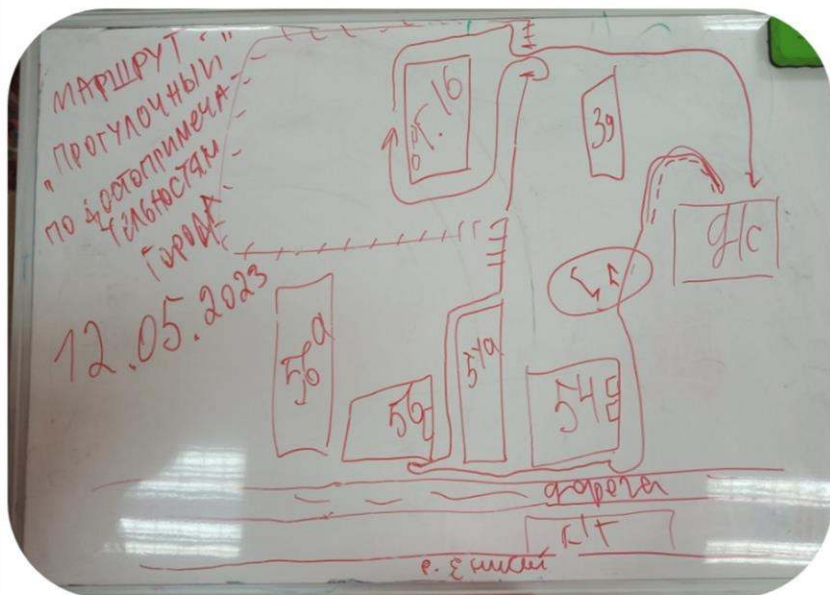 МАРШРУТ
"ПРОГУЛОЧНЫЙ"
ПО ДОСТОПРИМЕЧА-
ТЕЛЬНОСТЯМ
ГОРОДА
12.05.2023
16
39
д/с
56а
56
54а
54
дорога